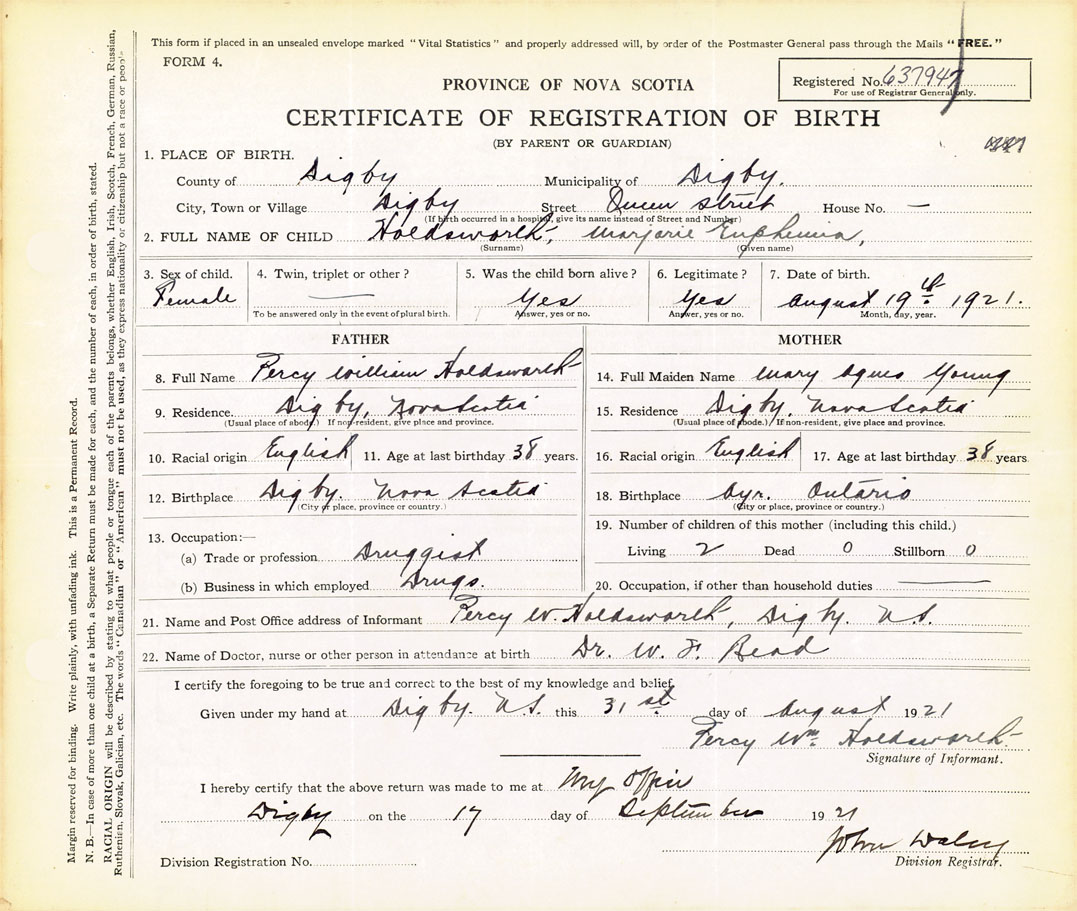 This form if placed in an unsealed envelope marked "Vital Statistics" and properly addressed will, by order of the Postmaster General pass through the Mails "FREE."
FORM 4.
Registered No. 637947
For use of Registrar General only.
PROVINCE OF NOVA SCOTIA
CERTIFICATE OF REGISTRATION OF BIRTH
(BY PARENT OR GUARDIAN)
1. PLACE OF BIRTH.
County of Digby Municipality of Digby.
City, Town or Village Digby Street Queen Street House No. —
(If birth occurred in a hospital, give its name instead of Street and Number)
2. FULL NAME OF CHILD Holdsworth, Marjorie Euphemia,
(Surname) (Given name)
3. Sex of child. 4. Twin, triplet or other? 5. Was the child born alive? 6. Legitimate? 7. Date of birth.
Female — Yes Yes August 19th. 1921.
To be answered only in the event of plural birth. Answer, yes or no. Answer, yes or no. Month, day, year.
FATHER
8. Full Name Percy William Holdsworth
9. Residence. Digby, Nova Scotia
(Usual place of abode.) If non-resident, give place and province.
10. Racial origin English 11. Age at last birthday 38 years.
12. Birthplace Digby. Nova Scotia
(City or place, province or country.)
13. Occupation:—
(a) Trade or profession Druggist
(b) Business in which employed Drugs.
MOTHER
14. Full Maiden Name Mary Agnes Young
15. Residence Digby. Nova Scotia
(Usual place of abode.) If non-resident, give place and province.
16. Racial origin English 17. Age at last birthday 38 years
18. Birthplace Ayr. Ontario
(City or place, province or country.)
19. Number of children of this mother (including this child.)
Living 2 Dead 0 Stillborn 0
20. Occupation, if other than household duties —
21. Name and Post Office address of Informant Percy W. Holdsworth, Digby. N.S.
22. Name of Doctor, nurse or other person in attendance at birth Dr. W. F. Read
I certify the foregoing to be true and correct to the best of my knowledge and belief.
Given under my hand at Digby. N.S. this 31st. day of August 1921
Percy Wm. Holdsworth.
Signature of Informant.
I hereby certify that the above return was made to me at My Office
Digby on the 17 day of September 1921
John Daley
Division Registration No. Division Registrar.
Margin reserved for binding. Write plainly, with unfading ink. This is a Permanent Record.
N. B.—In case of more than one child at a birth, a Separate Return must be made for each, and the number of each, in order of birth, stated.
RACIAL ORIGIN will be described by stating to what people or tongue each of the parents belongs, whether English, Irish, Scotch, French, German, Russian,
Ruthenian, Slovak, Galician, etc. The words "Canadian" or "American" must not be used, as they express nationality or citizenship but not a race or people